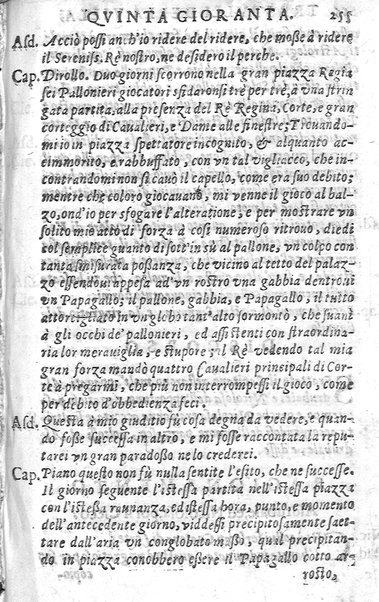 QVINTA GIORANTA. 255
Asd. Acciò possi anch'io ridere del ridere, che moße à ridere
il Sereniss. Rè nostro, ne desidero il perche.
Cap. Dirollo. Duo giorni scorrono nella gran piazza Regia
sei Pallonieri giocatori sfidaronsi trè per trè, à vna strin
gata partita, alla presenza del Rè Regina, Corte, e gran
corteggio di Caualieri, e Dame alle finestre; Trouando-
mi io in piazza spettatore incognito, & alquanto ac-
ceimmorito, e rabbuffato, con vn tal vigliacco, che in-
contrandomi non si cauò il capello, come era suo debito;
mentre che coloro giocauano, mi venne il gioco al bal-
zo, ond'io per sfogare l'alteratione, e per mostrare vn
solito mio atto di forza à così numeroso ritrouo, diedi
col semplice guanto di sott'in sù al pallone, vn colpo con
tanta smisurata poßanza, che vicino al tetto del palaz-
zo essendoui appesa ad v'n rostro vna gabbia dentroui
vn Papagallo; il pallone, gabbia, e Papagallo, il tutto
attortigliato in vn globo tant'alto formontò, che suanì
à gli occhi de' pallonieri, ed assistenti con straordina-
ria lor merauiglia, e stupore; il Rè vedendo tal mia
gran forza mandò quattro Caualieri principali di Cor-
te à pregarmi, che più non interrompessi il gioco, come
per debito d'obbedienza feci.
Asd. Questa à mio giuditio fù cosa degna da vedere, e quan-
do foße successa in altro, e mi fosse raccontata la repu-
tarei vn gran paradoßo nelo crederei.
Cap. Piano questo non fù nulla sentite l'esito, che ne successe.
Il giorno seguente l'istessa partita nell'istessa piazza
con l'istessa raunanza, ed istessa hora, punto, e momento
dell'antecedente giorno, viddesi precipitosamente saet-
tare dall'aria vn conglobato maßo, qual precipitan-
do in piazza conobbero eßere il Papagallo cotto ar-
rosto,